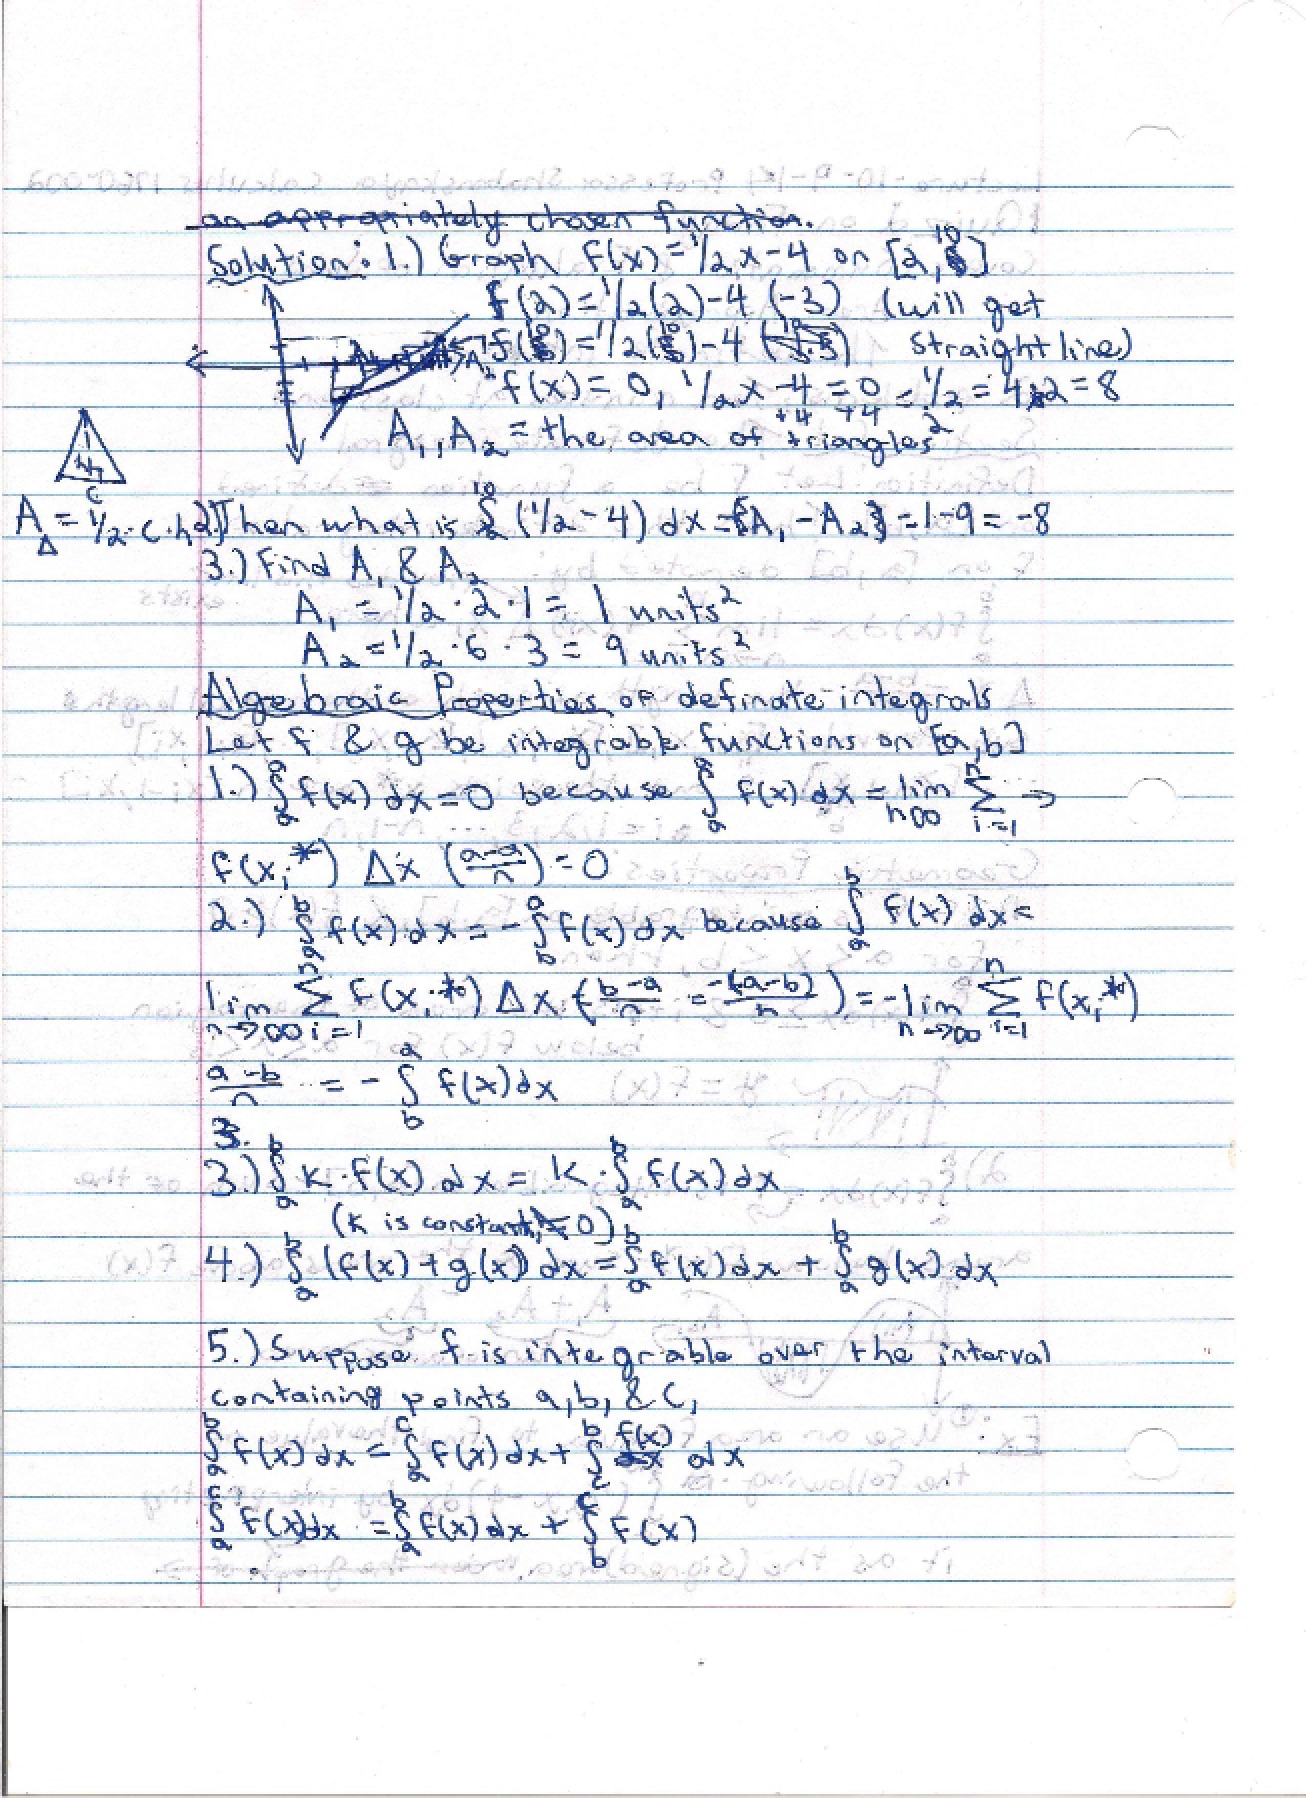 an appropriately chosen function.
Solution: 1.) Graph f(x) = 1/2 x - 4 on [2, 10]
f(2) = 1/2(2) - 4 (-3) (will get
f(10) = 1/2(10) - 4 straight line)
f(x) = 0, 1/2 x - 4 = 0 = 1/2 = 4·2 = 8
+4 +4
A₁, A₂ = the area of triangles
A△ = 1/2 · c · h
2.) Then what is ∫₂¹⁰ (1/2 - 4) dx = {A₁ - A₂} = 1 - 9 = -8
3.) Find A₁ & A₂
A₁ = 1/2 · 2 · 1 = 1 units²
A₂ = 1/2 · 6 · 3 = 9 units²
Algebraic Properties of definate integrals
Let f & g be integrable functions on [a, b]
1.) ∫ₐᵃ f(x) dx = 0 because ∫ₐᵃ f(x) dx = lim n∞ Σⁿ i=1 →
f(xᵢ*) Δx (a-a/n) = 0
2.) ∫ₐᵇ f(x) dx = - ∫_bᵃ f(x) dx because ∫ₐᵇ f(x) dx =
lim n→∞ Σⁿ i=1 f(xᵢ*) Δx (b-a/n = -(a-b)/n) = - lim n→∞ Σⁿ i=1 f(xᵢ*)
a-b/n = - ∫_bᵃ f(x) dx
3.
3.) ∫ₐᵇ k · f(x) dx = k · ∫ₐᵇ f(x) dx
(k is constant, ≠ 0)
4.) ∫ₐᵇ (f(x) + g(x)) dx = ∫ₐᵇ f(x) dx + ∫ₐᵇ g(x) dx
5.) Suppose f is integrable over the interval
containing points a, b, & c,
∫ₐᵇ f(x) dx = ∫ₐᶜ f(x) dx + ∫_cᵇ f(x) dx
∫ₐᶜ f(x) dx = ∫ₐᵇ f(x) dx + ∫_bᶜ f(x)